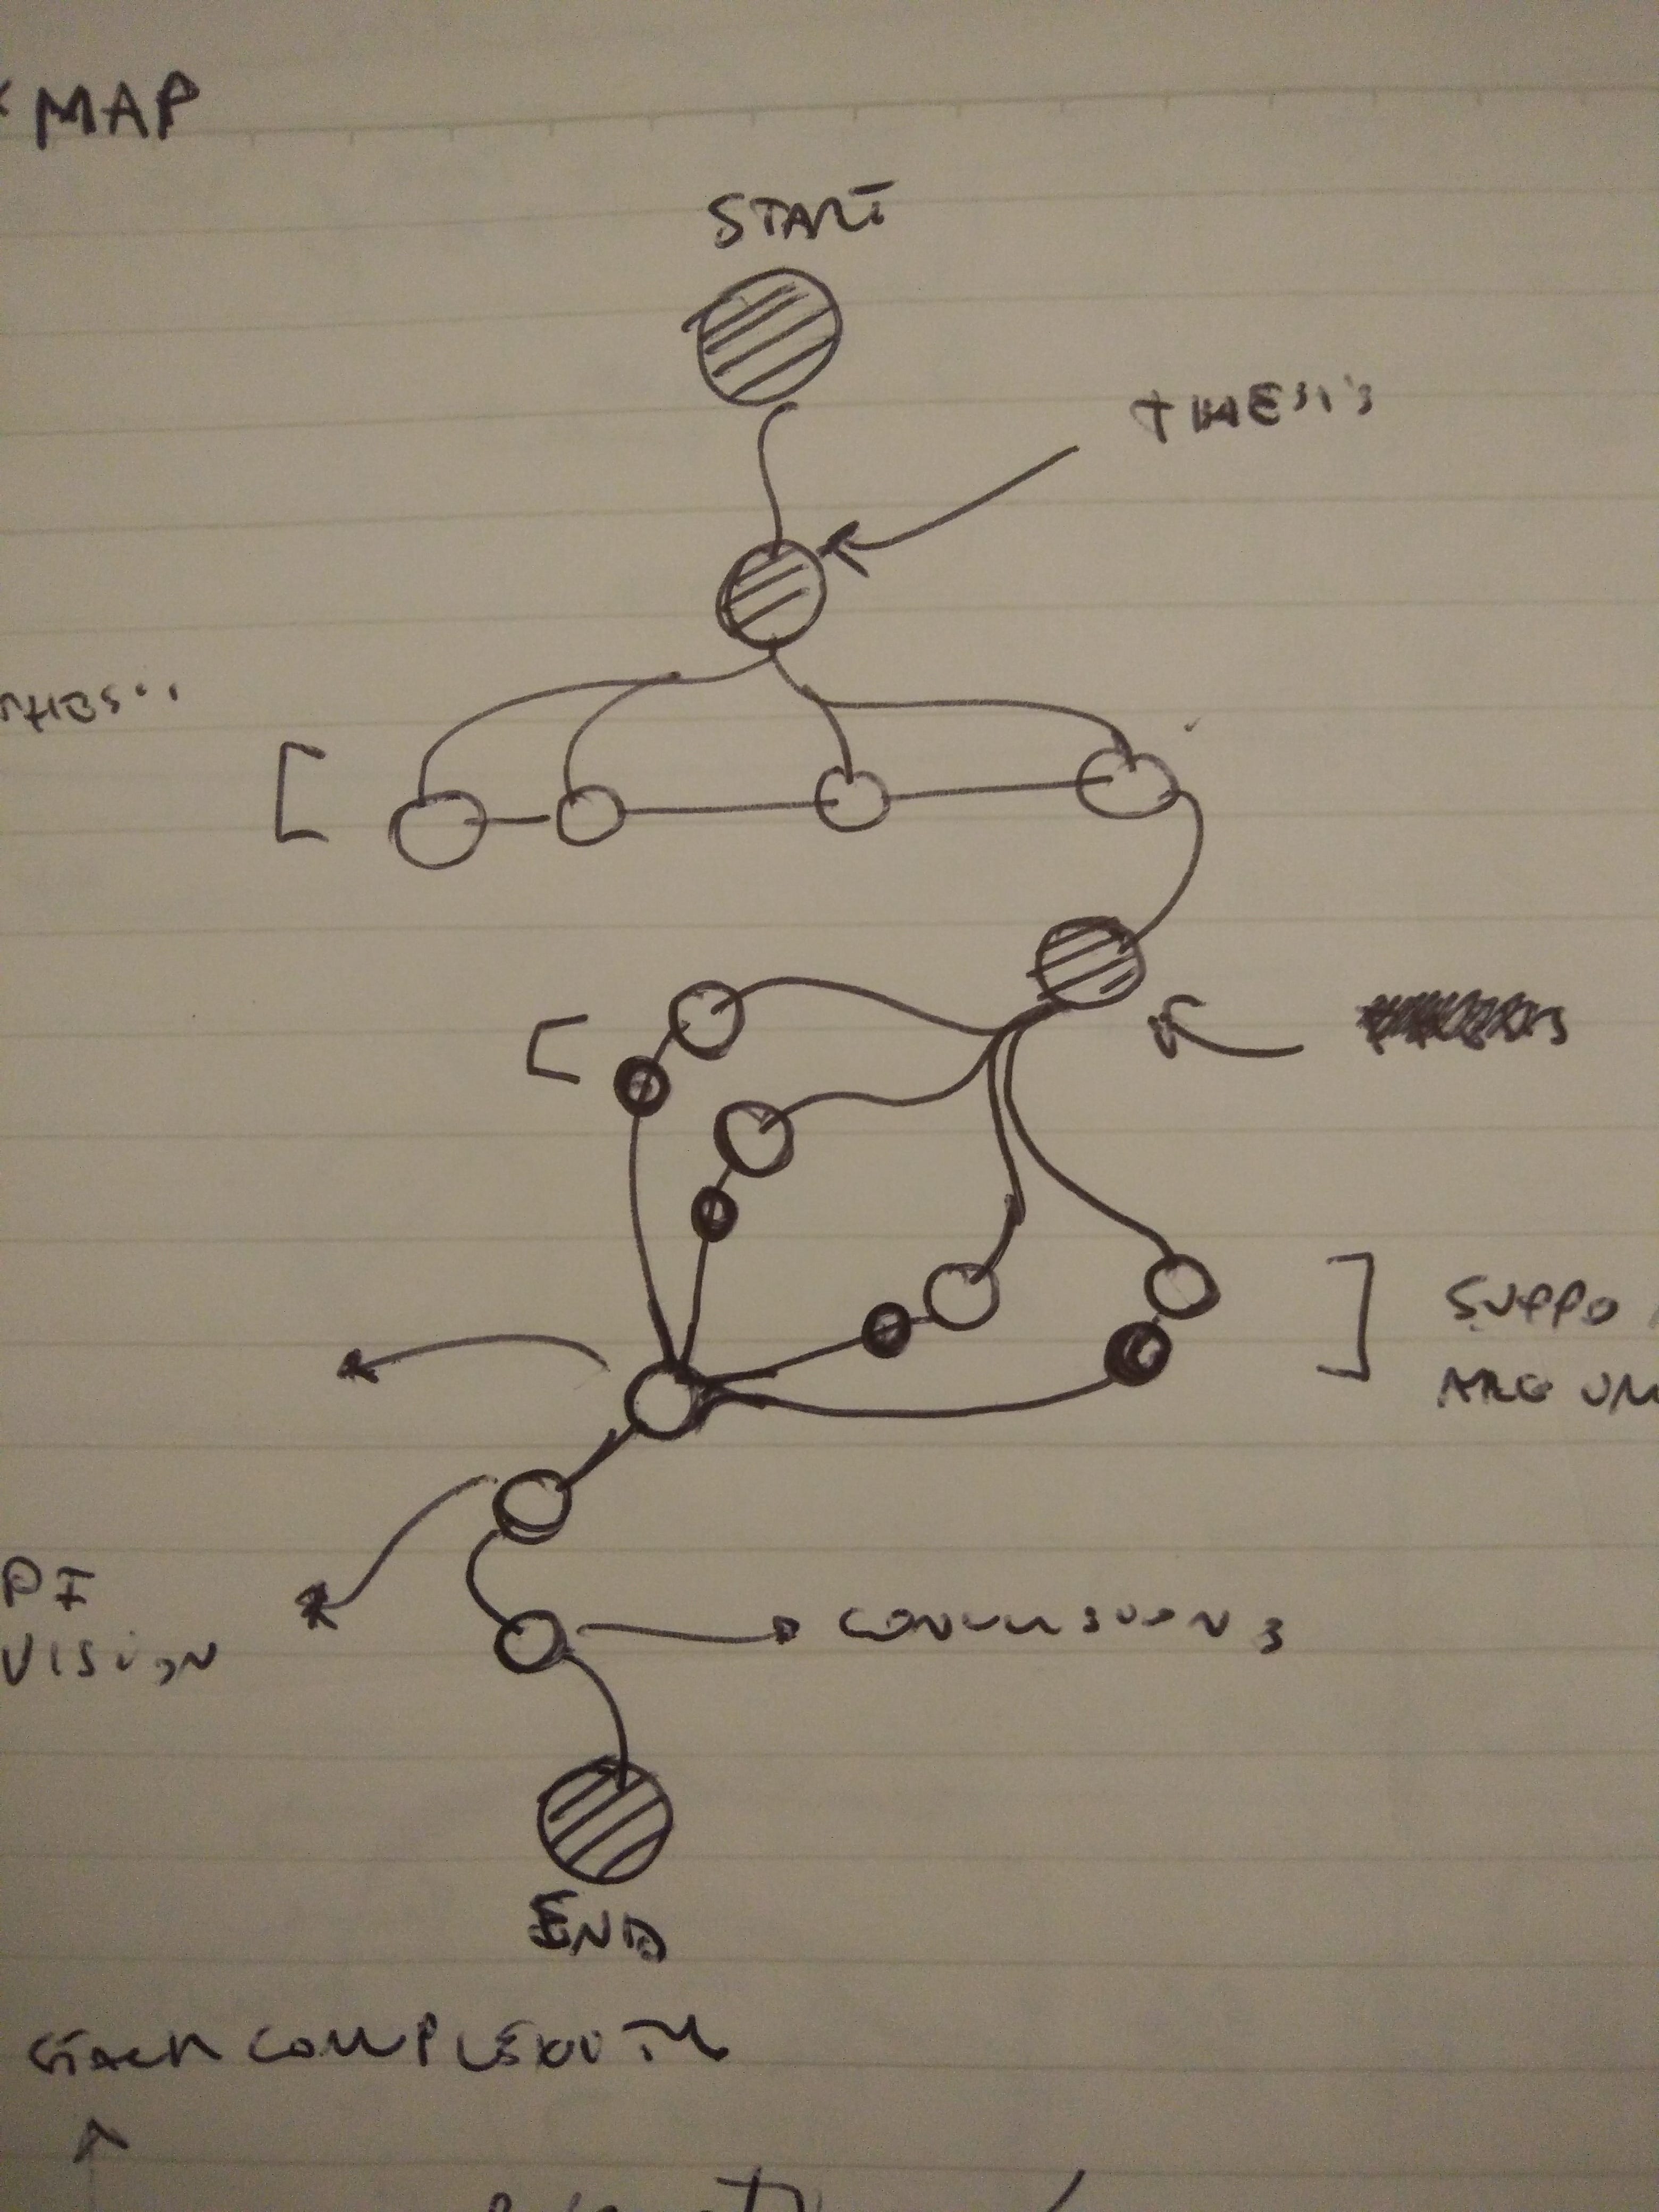 MAP
START
THESIS
SUPPO
ARGUM
PI
VISION
CONCLUSIONS
END
COMPLEXITY